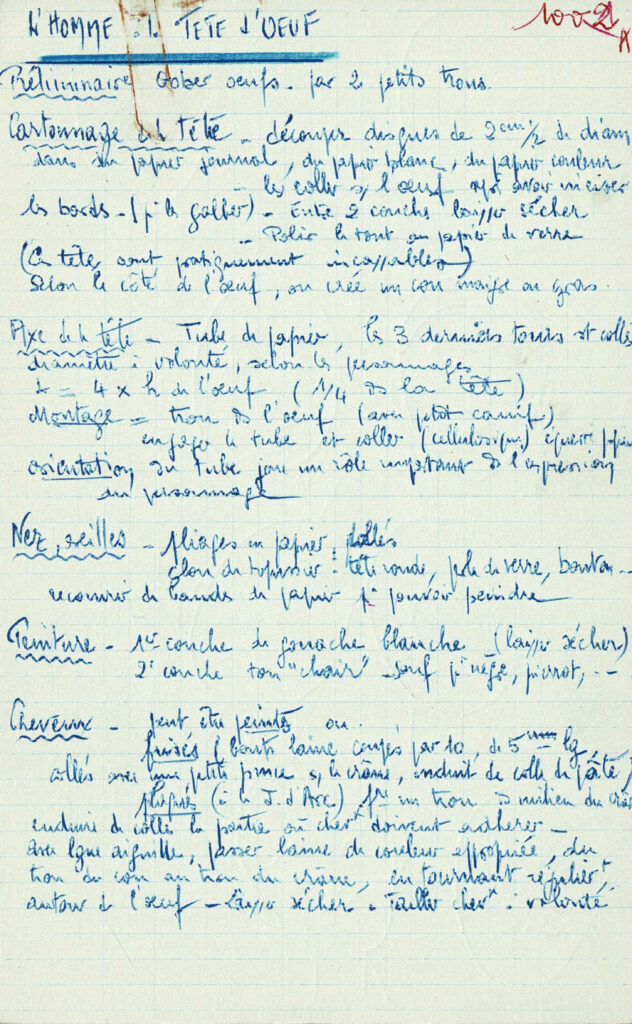 L'HOMME à la TETE d'OEUF
1002
Préliminaire Gober oeufs - par 2 petits trous.
Cartonnage de la tête - découper disques de 2 cm 1/2 de diam
dans du papier journal, du papier blanc, du papier couleur
- les coller s/ l'oeuf après avoir inciser
les bords - (pr les galber) - Entre 2 couches laisser sécher
- Polir le tout au papier de verre
(Ces têtes sont pratiquement incassables)
Selon le côté de l'oeuf, on crée un cou maigre ou gras.
Axe de la tête - Tube de papier, les 3 derniers tours st collés
diamètre à volonté, selon les personnages
L = 4 x h de l'oeuf (1/4 ds la tête)
Montage = trou ds l'oeuf (avec petit canif)
engager le tube et coller (cellulosique)
orientation du tube joue un rôle important ds l'expression
du personnage
Nez, oreilles - pliages en papier, collés
clou de tapissier : tête ronde, perle de verre, bouton --
recouvrir de bandes de papier pr pouvoir peindre
Peinture - 1ère couche de gouache blanche (laisser sécher)
2e couche ton "chair" - sauf pr nègre, pierrot, --
Cheveux - peut être peints ou
frisés (bouts laine coupés par 10, de 5 mm lg,
collés avec une petite pince s/ le crâne, enduit de colle de pâte)
plaqués (à la J. d'Arc) fre un trou au milieu du crâne
enduire de colle la partie où chevx doivent adhérer -
avec lgue aiguille, passer laine de couleur appropriée, du
trou du cou au trou du crâne, en tournant régulièrt
autour de l'oeuf - laisser sécher - tailler chevx à volonté